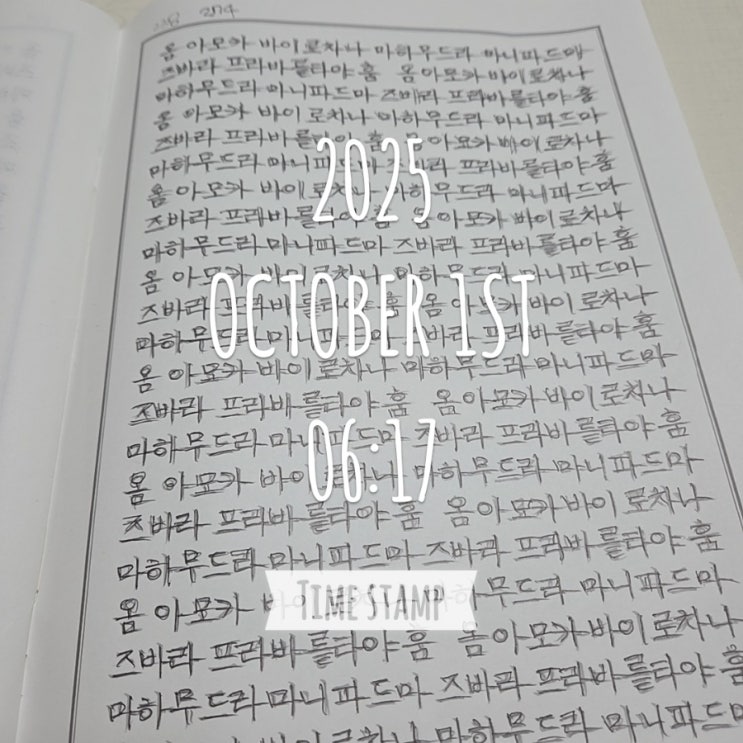 옴 아모카 바이로차나 마하무드라 마니파드마
즈바라 프라바를타야 훔 옴 아모카 바이로차나
마하무드라 마니파드마 즈바라 프라바를타야 훔
옴 아모카 바이로차나 마하무드라 마니파드마
즈바라 프라바를타야 훔 옴 아모카 바이로차나
마하무드라 마니파드마 즈바라 프라바를타야 훔
옴 아모카 바이로차나 마하무드라 마니파드마
즈바라 프라바를타야 훔 옴 아모카 바이로차나
마하무드라 마니파드마 즈바라 프라바를타야 훔
옴 아모카 바이로차나 마하무드라 마니파드마
즈바라 프라바를타야 훔 옴 아모카 바이로차나
마하무드라 마니파드마 즈바라 프라바를타야 훔
옴 아모카 바이로차나 마하무드라 마니파드마
즈바라 프라바를타야 훔 옴 아모카 바이로차나
마하무드라 마니파드마 즈바라 프라바를타야 훔
옴 아모카 바이로차나 마하무드라 마니파드마
즈바라 프라바를타야 훔 옴 아모카 바이로차나
마하무드라 마니파드마 즈바라 프라바를타야 훔
옴 아모카 마하무드라 마니파드마
즈바라 프라바를타야 훔 옴 아모카 바이로차나
마하무드라 마니파드마 즈바라 프라바를타야 훔
2025
OCTOBER 1ST
06:17
TIME STAMP